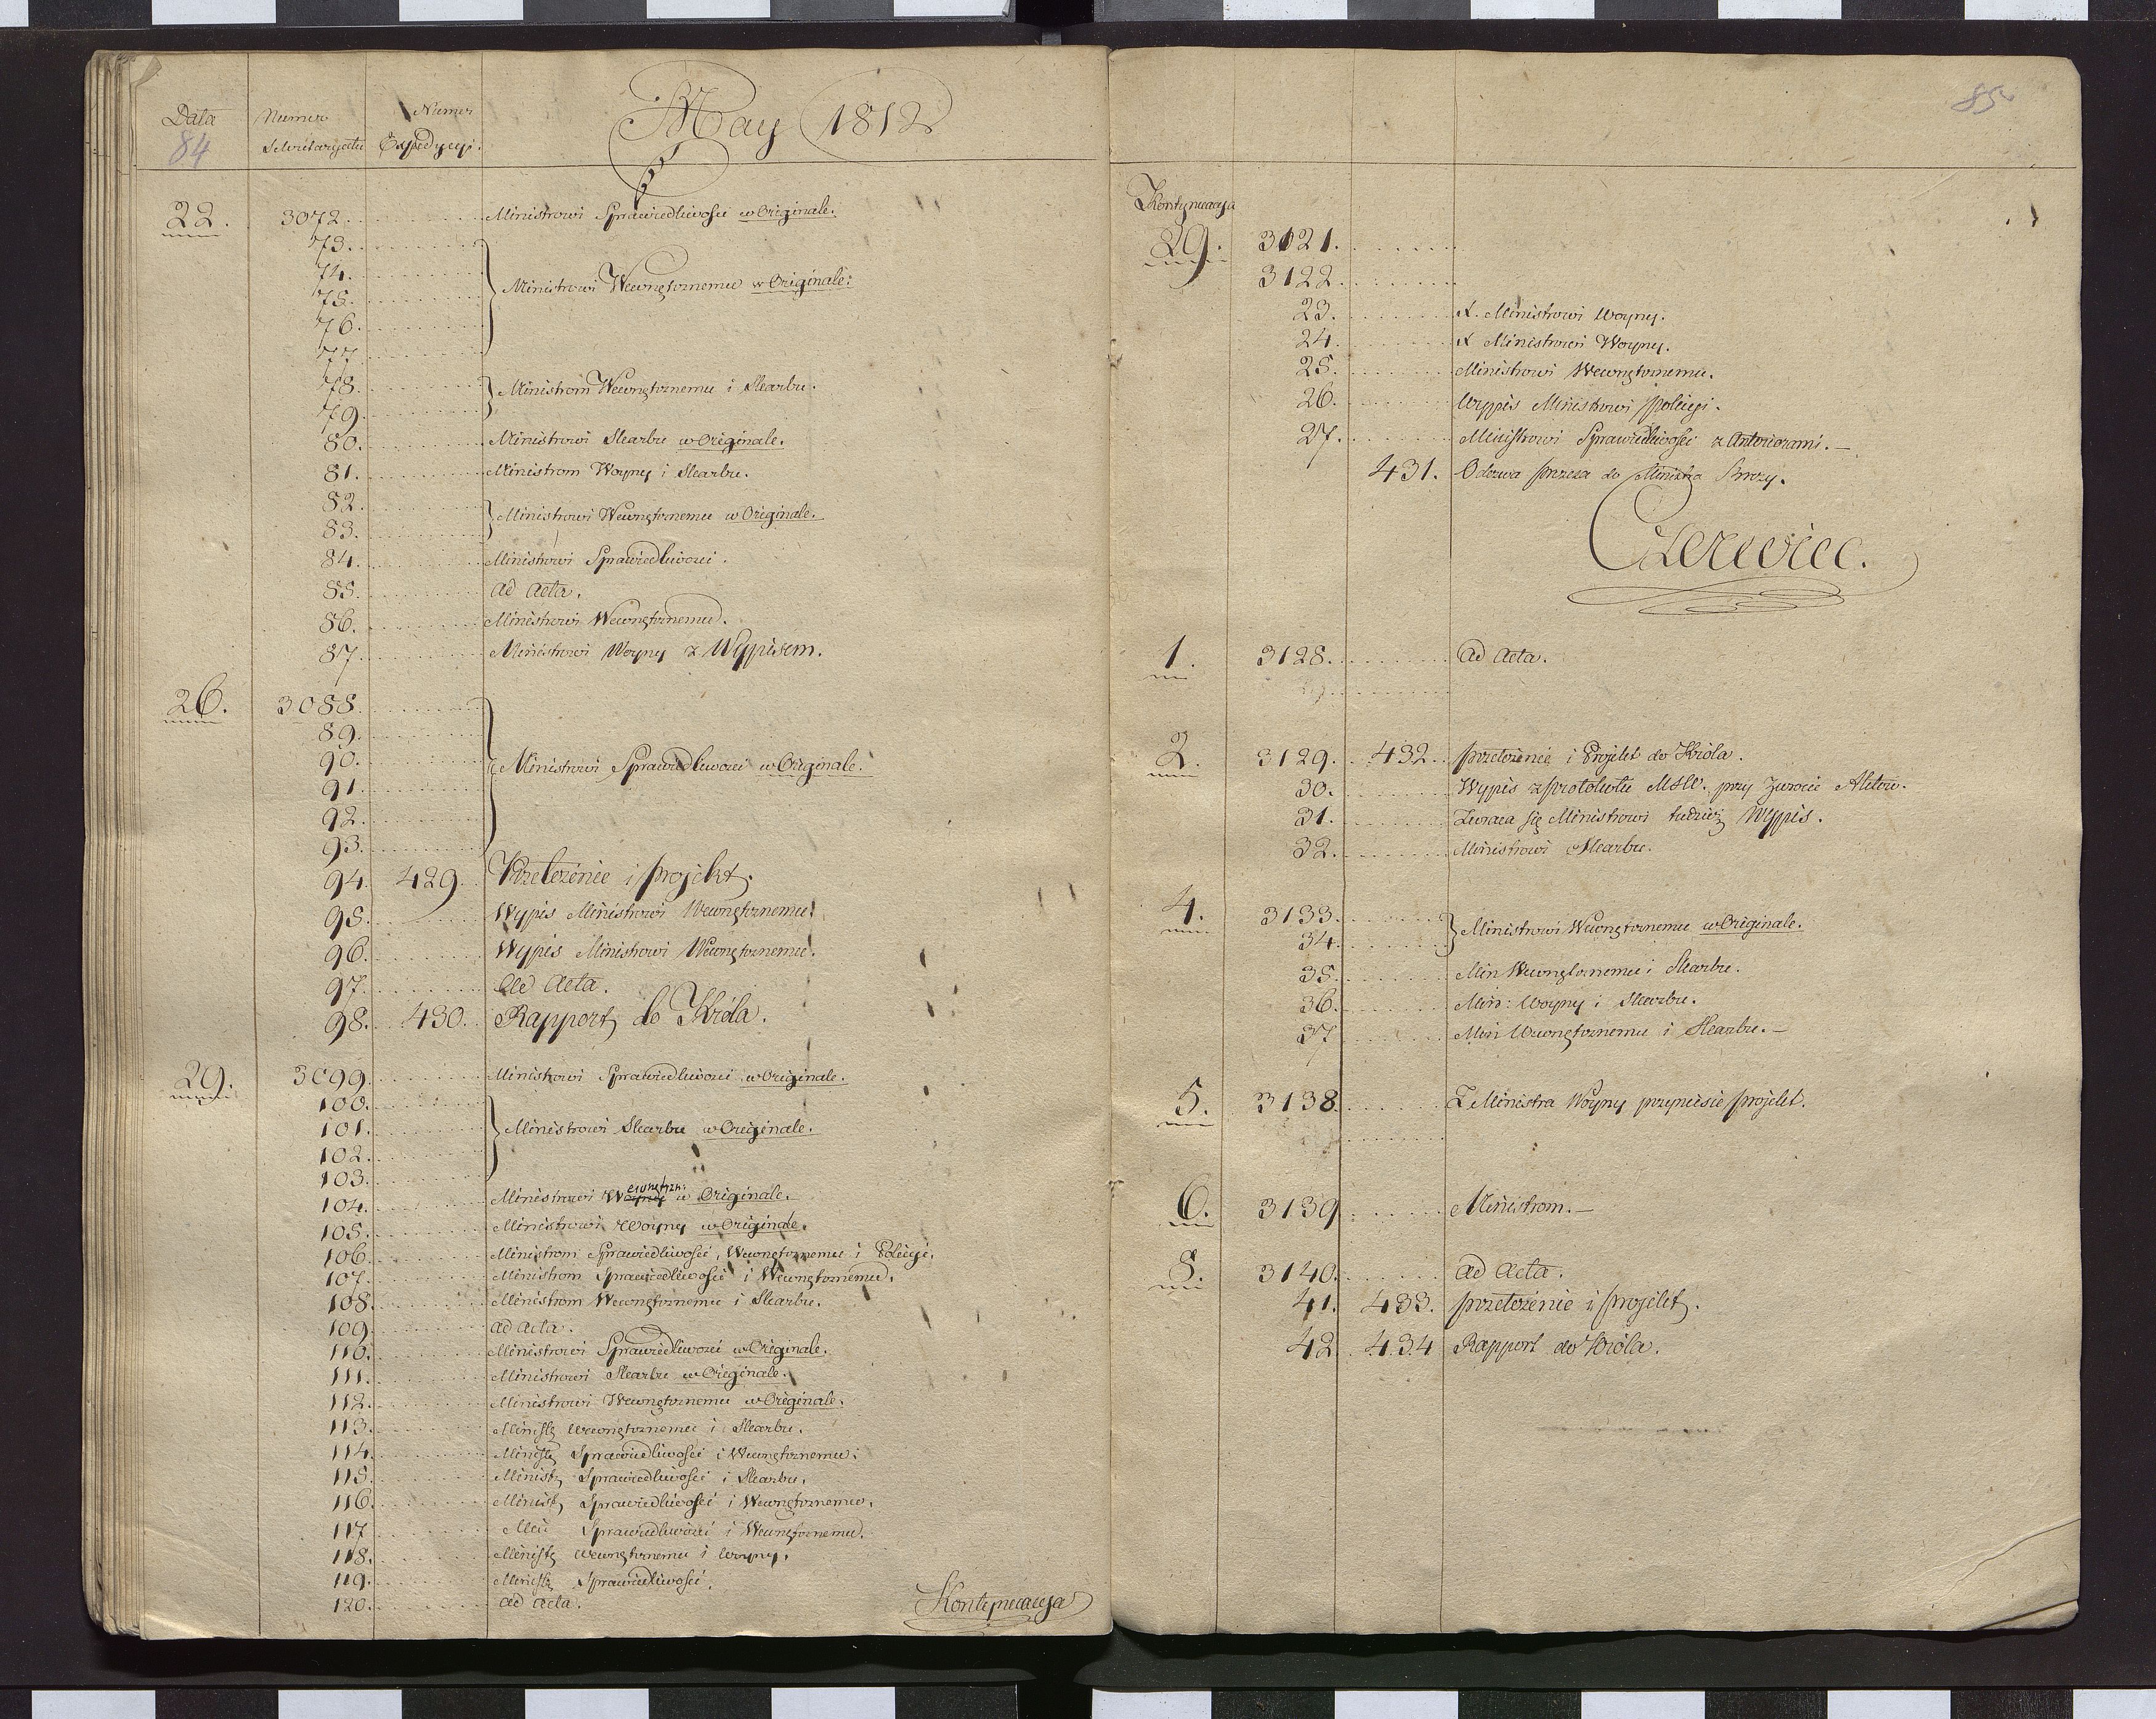 Data
84
Numer
Sekretaryatu
Numer
Expedycyi.
May 1812
22. 3072. Ministrowi Sprawiedliwości w Originale.
73.
74.
75. Ministrowi Wewnętrznemu w Originale.
76.
77.
78. Ministrom Wewnętrznemu i Skarbu.
79.
80. Ministrowi Skarbu w Originale.
81. Ministrom Woyny i Skarbu.
82. Ministrowi Wewnętrznemu w Originale.
83.
84. Ministrowi Sprawiedliwości.
85. Ad Acta.
86. Ministrowi Wewnętrznemu.
87. Ministrowi Woyny z Wypisem.
26. 3088.
89.
90. Ministrowi Sprawiedliwości w Originale.
91.
92.
93.
94. 429. Przełożenie i projekt.
95. Wypis Ministrowi Wewnętrznemu.
96. Wypis Ministrowi Wewnętrznemu.
97. Ad Acta.
98. 430. Rapport do Króla.
29. 3099. Ministrowi Sprawiedliwości w Originale.
100.
101. Ministrowi Skarbu w Originale.
102.
103.
104. Ministrowi Wewnętrzn: w Originale.
105. Ministrowi Woyny w Originale.
106. Ministrom Sprawiedliwości, Wewnętrznemu i Policyi.
107. Ministrom Sprawiedliwości i Wewnętrznemu.
108. Ministrom Wewnętrznemu i Skarbu.
109. ad acta.
110. Ministrowi Sprawiedliwości w Originale.
111. Ministrowi Skarbu w Originale.
112. Ministrowi Wewnętrznemu w Originale.
113. Minist Wewnętrznemu i Skarbu.
114. Minist Sprawiedliwości i Wewnętrznemu.
115. Minist Sprawiedliwości i Skarbu.
116. Minist Sprawiedliwości i Wewnętrznemu.
117 Min Sprawiedliwości i Wewnętrznemu.
118. Minist Wewnętrznemu i Woyny.
119. Minist Sprawiedliwości.
120. ad acta.
Kontynuacya
85
Kontynuacya
29. 3121.
3122.
23. X. Ministrowi Woyny.
24. X Ministrowi Woyny.
25. Ministrowi Wewnętrznemu.
26. Wypis Ministrowi Policyi.
27. Ministrowi Sprawiedliwości z Anteriorami.
431. Odezwa prezesa do Ministra
Czerwiec.
1. 3128. Ad Acta.
2. 3129. 432. przełożenie i Projekt do Króla.
30. Wypis z protokułu przy Zwrocie Aktów.
31. Zwraca się Ministrowi tudzież Wypis.
32. Ministrowi Skarbu.
4. 3133.
34. Ministrowi Wewnętrznemu w Originale.
35. Min Wewnętrznemu i Skarbu.
36. Min: Woyny i Skarbu.
37 Min Wewnętrznemu i Skarbu.
5. 3138. Z Ministra Woyny przyniesie projekt.
6. 3139 Ministrom.
8. 3140. ad acta.
41. 433. przełożenie i projekt.
42 434 Rapport do Króla.